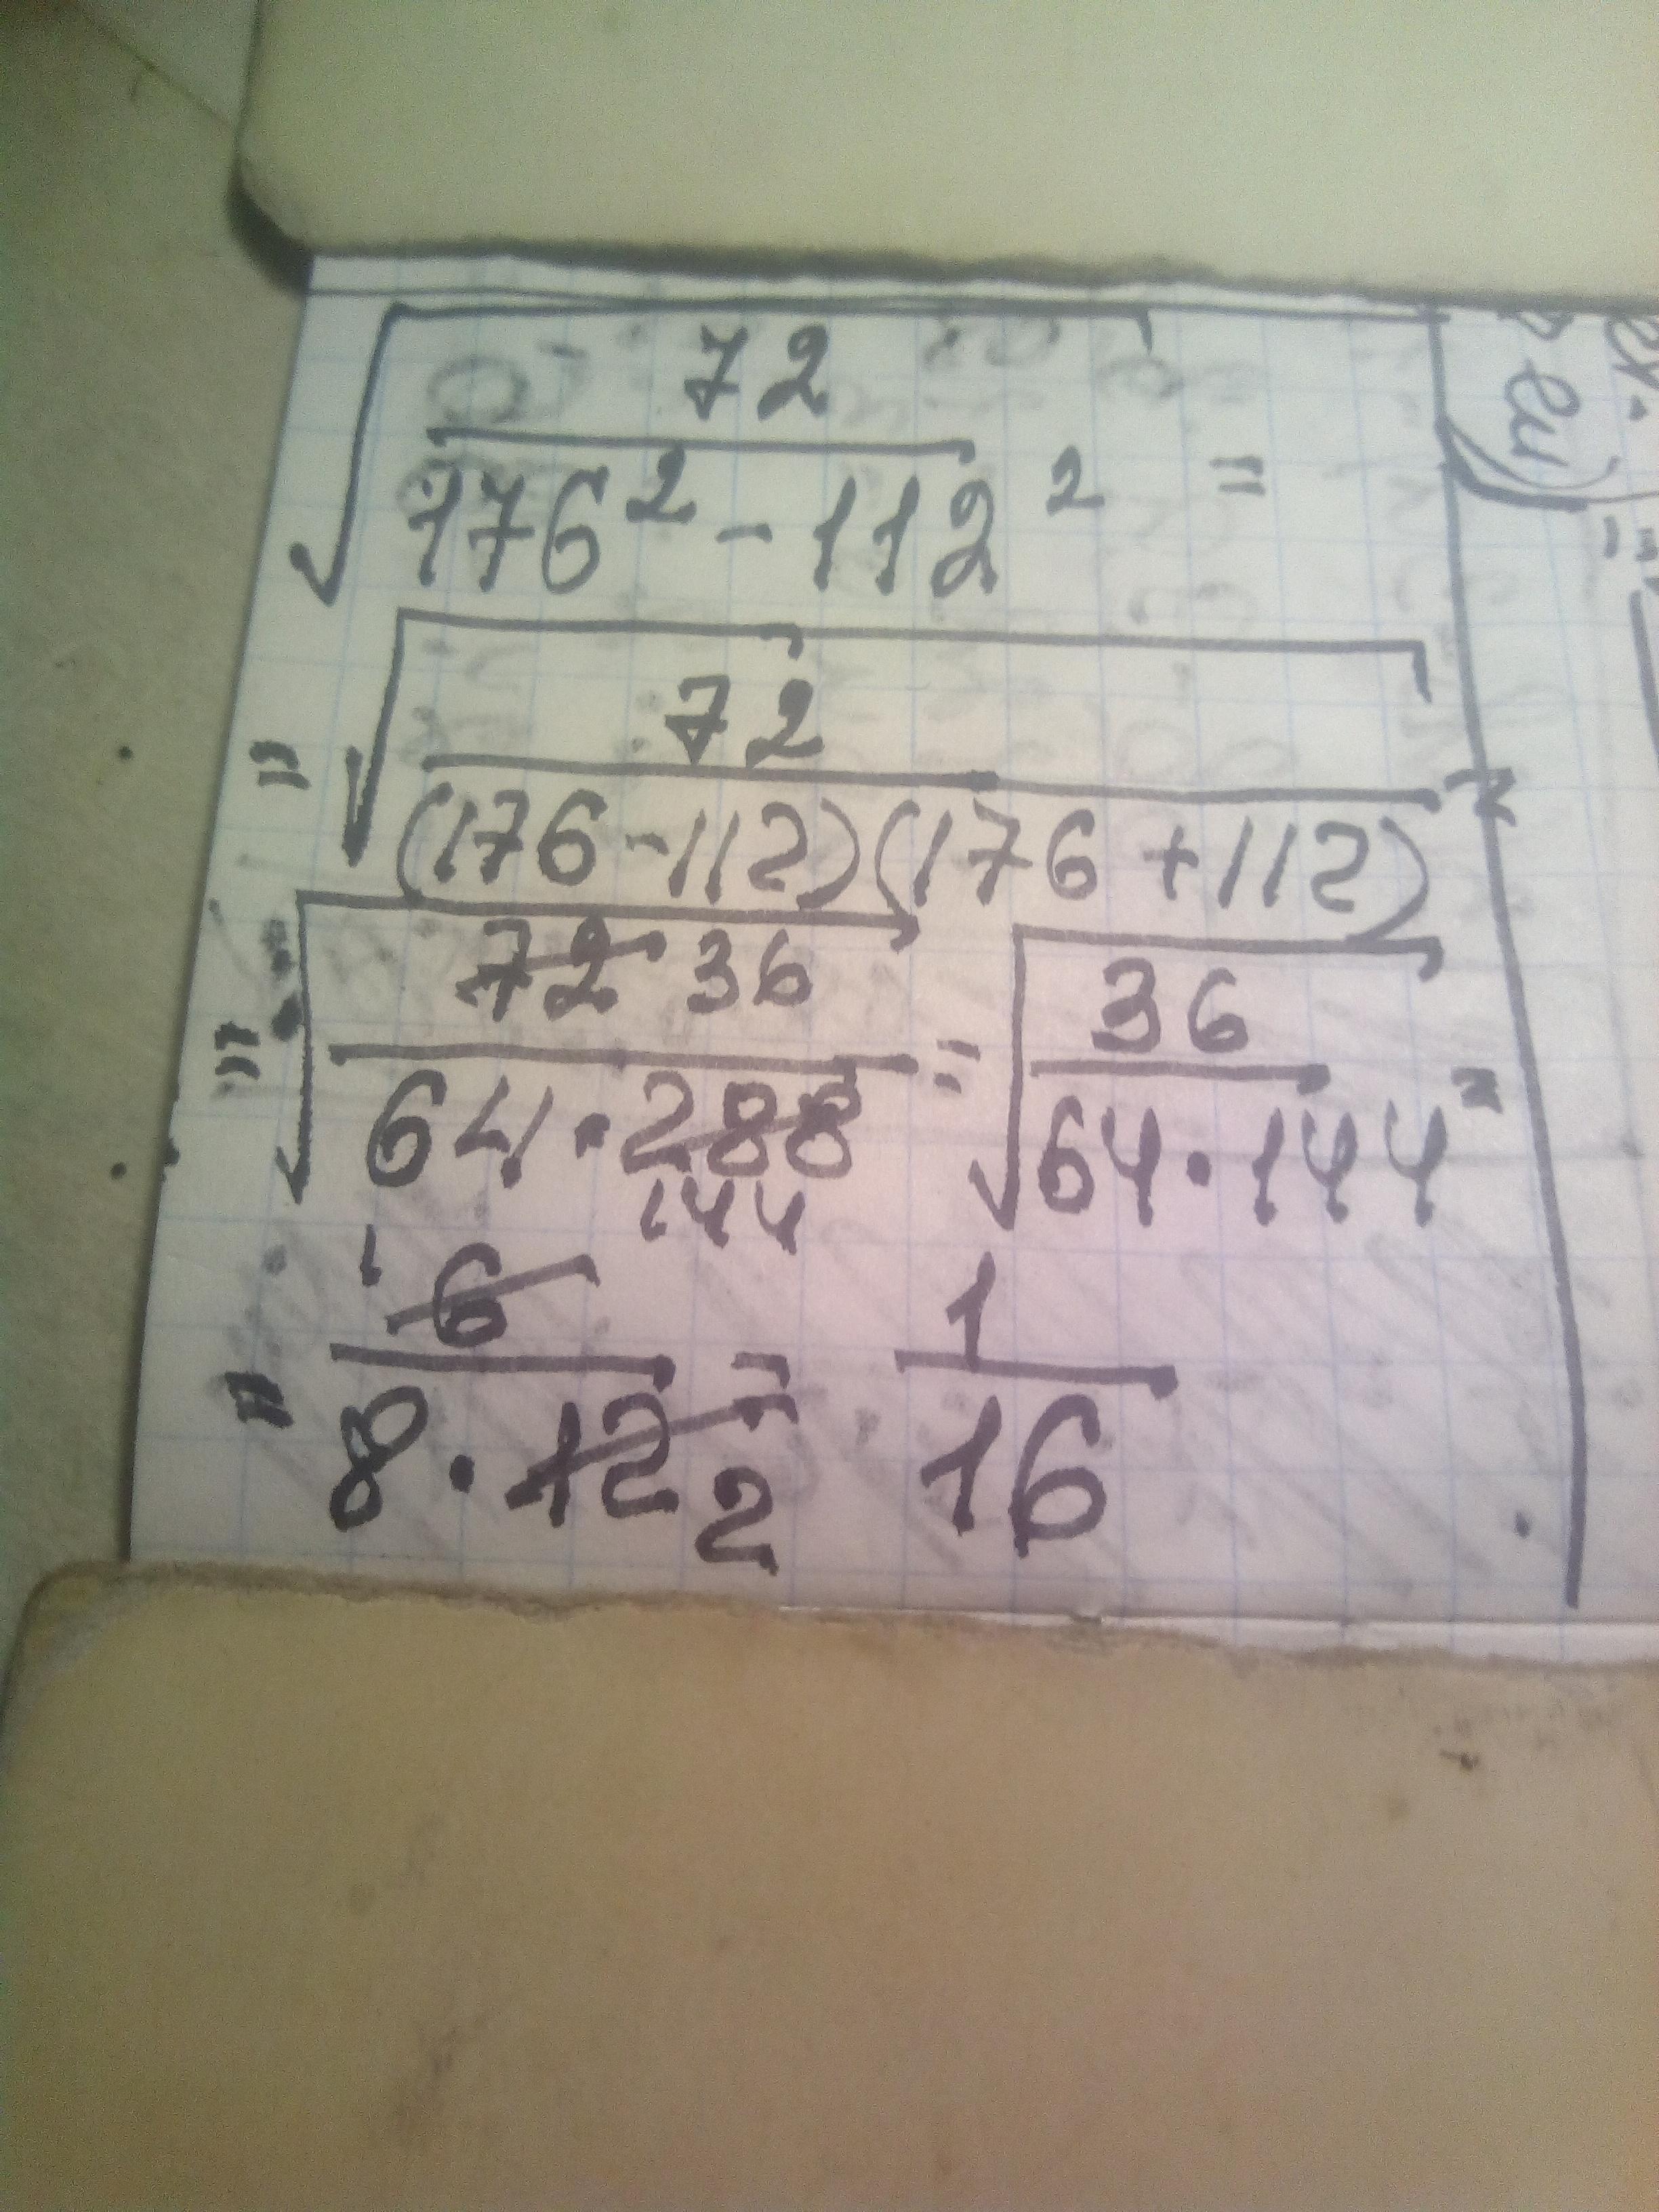 √(72 / (176² - 112²)) =
= √(72 / ((176 - 112)(176 + 112))) =
= √(72 36 / (64 · 288 144)) = √(36 / (64 · 144)) =
= 1 6 / (8 · 12 2) = 1 / 16